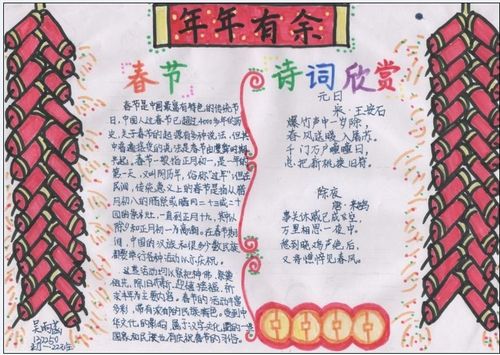 年年有余
春节
春节是中国最富有特色的传统节
日,中国人过春节已超过4000多年的历
史,关于春节的起源有多种说法,但其
中普遍接受的说法是春节由虞舜时期
兴起。春节一般指正月初一,是一年的
第一天,又叫阴历年,俗称“过年”;但在
民间,传统意义上的春节是指从腊
月初八的腊祭或腊月二十三或二十
四的祭灶,一直到正月十九,其中以
除夕和正月初一为高潮。在春节期
间,中国的汉族和很多少数民族
都要举行各种活动以示庆祝。
这些活动均以祭祀神佛、祭奠
祖先、除旧布新、迎禧接福、祈
求丰年为主要内容。春节的活动丰富
多彩,带有浓郁的民族特色。受到中
华文化的影响,属于汉字文化圈的一些
国家和民族也有庆祝春节的习俗。
诗词欣赏
元日
宋·王安石
爆竹声中一岁除,
春风送暖入屠苏。
千门万户曈曈日,
总把新桃换旧符。
除夜
唐·来鹄
事关休戚已成空,
万里相思一夜中。
愁到晓鸡声绝后,
又将憔悴见春风。